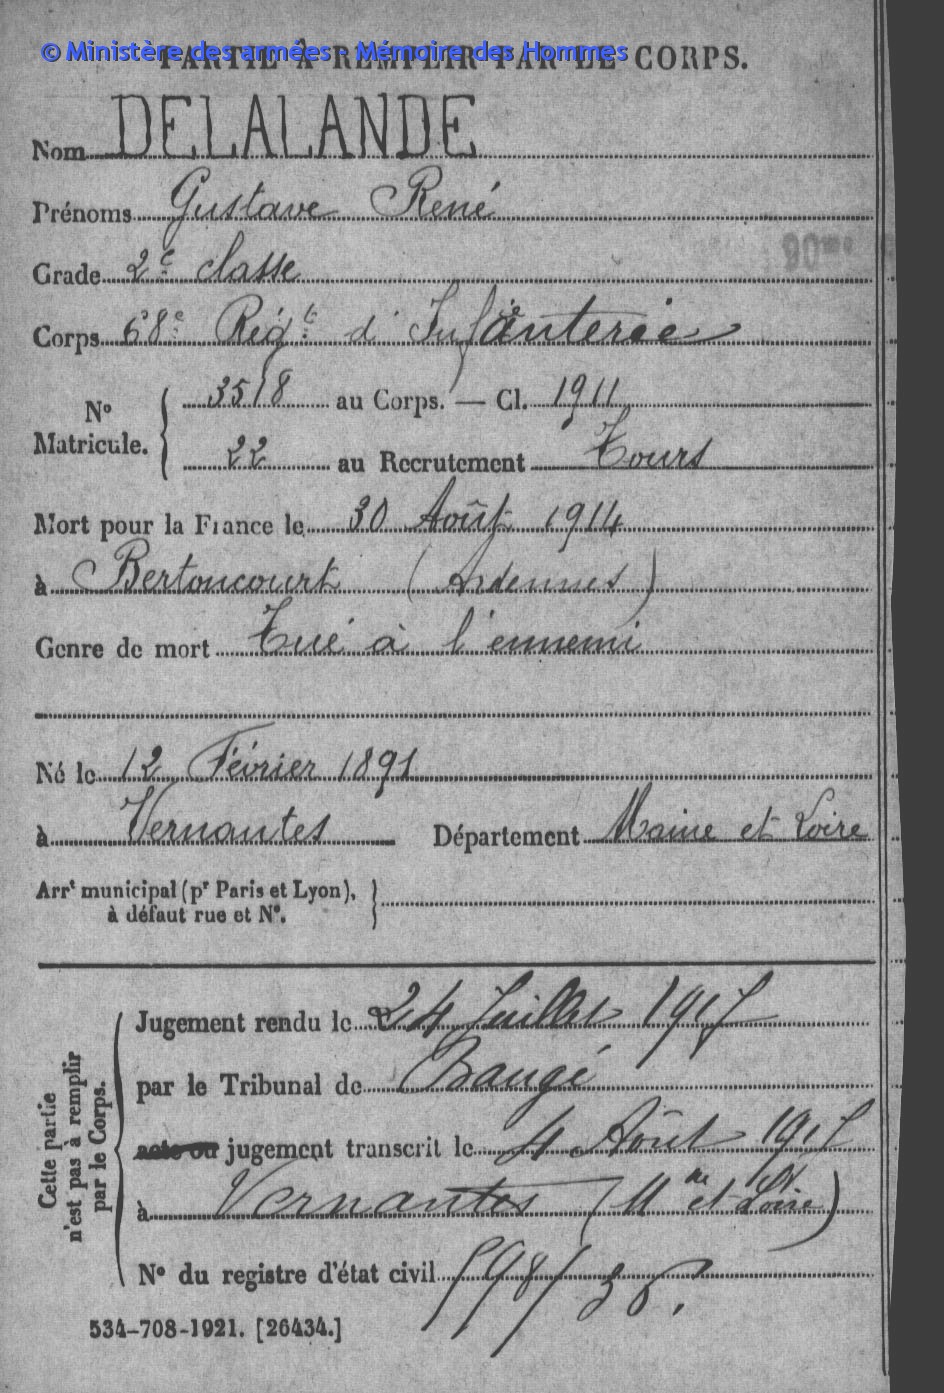 © Ministère des armées - Mémoire des Hommes
PARTIE À REMPLIR PAR LE CORPS.
Nom DELALANDE
Prénoms Gustave René
Grade 2e classe
Corps 68e Régt d'Infanterie
No Matricule. { 3518 au Corps. — Cl. 1911
22 au Recrutement Tours
Mort pour la France le 30 Août 1914
à Bertoncourt (Ardennes)
Genre de mort Tué à l'ennemi
Né le 12 Février 1891
à Vernantes Département Maine et Loire
Arrt municipal (pr Paris et Lyon),
à défaut rue et No.
Cette partie
n'est pas à remplir
par le Corps.
Jugement rendu le 24 Juillet 1917
par le Tribunal de Baugé
acte ou jugement transcrit le 4 Août 1917
à Vernantes (Mne et Loire)
No du registre d'état civil
534-708-1921. [26434.]